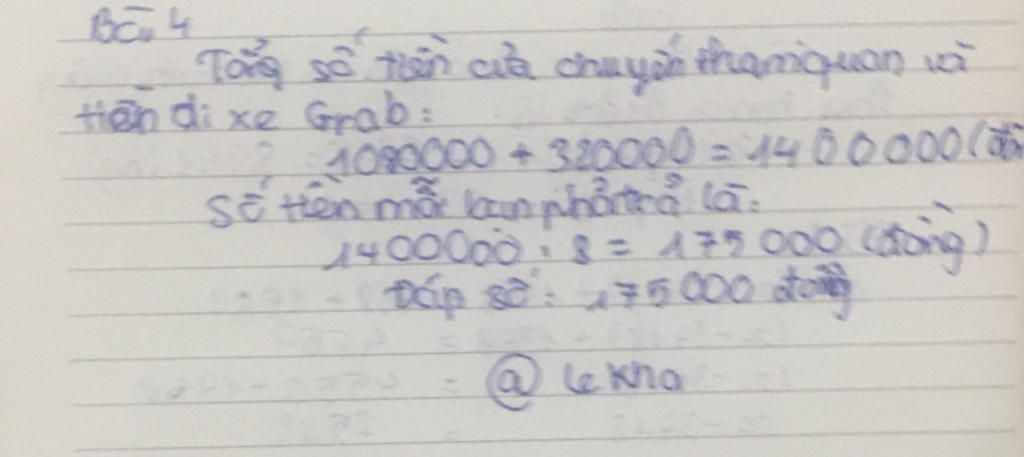 Bài 4
Tổng số tiền của chuyến tham quan và
tiền đi xe Grab:
1080000 + 320000 = 1400000 (đồ
Số tiền mỗi bạn phải trả là:
1400000 : 8 = 175000 (đồng)
Đáp số: 175000 đồng
@ Le Kha